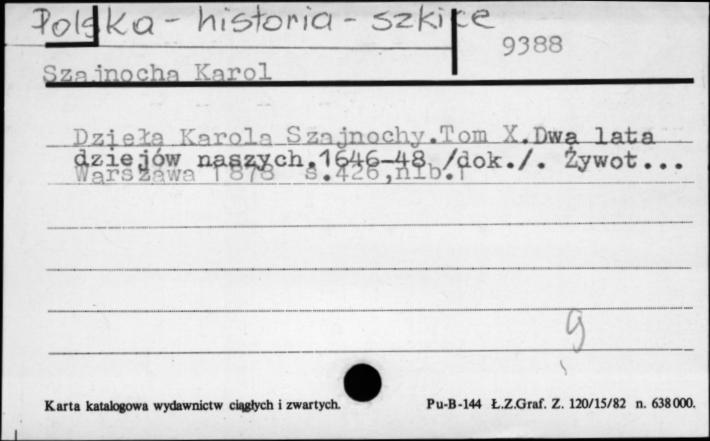 Polska - historia - szkice
9388
Szajnocha Karol
Dzieła Karola Szajnochy.Tom X.Dwa lata
dziejów naszych.1646-48 /dok./. Żywot...
Warszawa 1878 s.426,nlb.1
9
Karta katalogowa wydawnictw ciągłych i zwartych.
Pu-B-144 Ł.Z.Graf. Z. 120/15/82 n. 638000.